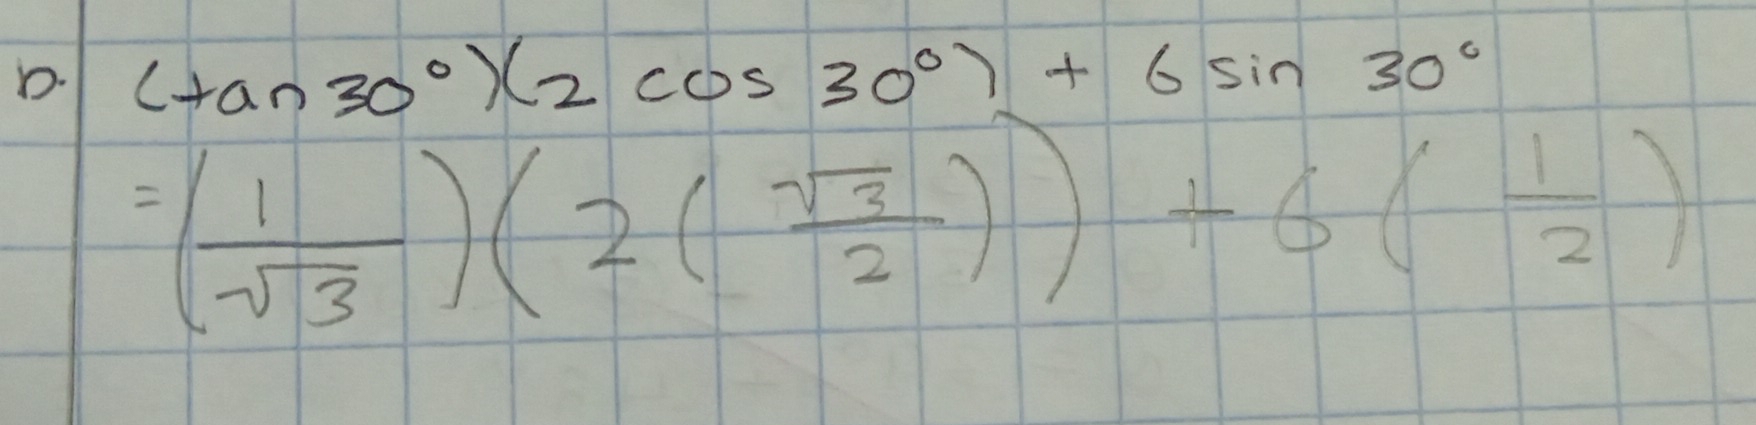 b. (tan 30°)(2 cos 30°) + 6 sin 30°
= (1/√3)(2(√3/2)) + 6(1/2)